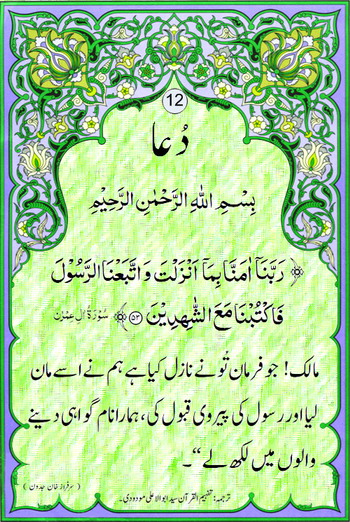 12
دُعا
بِسْمِ اللهِ الرَّحْمٰنِ الرَّحِيْمِ
رَبَّنَآ اٰمَنَّا بِمَآ اَنْزَلْتَ وَاتَّبَعْنَا الرَّسُوْلَ
فَاكْتُبْنَا مَعَ الشّٰهِدِيْنَ ﴿۵۳﴾ سُوْرَةُ اٰلِ عِمْرٰن
مالک! جو فرمان تُو نے نازل کیا ہے ہم نے اسے مان
لیا اور رسول کی پیروی قبول کی، ہمارا نام گواہی دینے
والوں میں لکھ لے“۔
(سرفراز خان جدون)
ترجمہ: تفہیم القرآن سید ابوالاعلیٰ مودودی۔